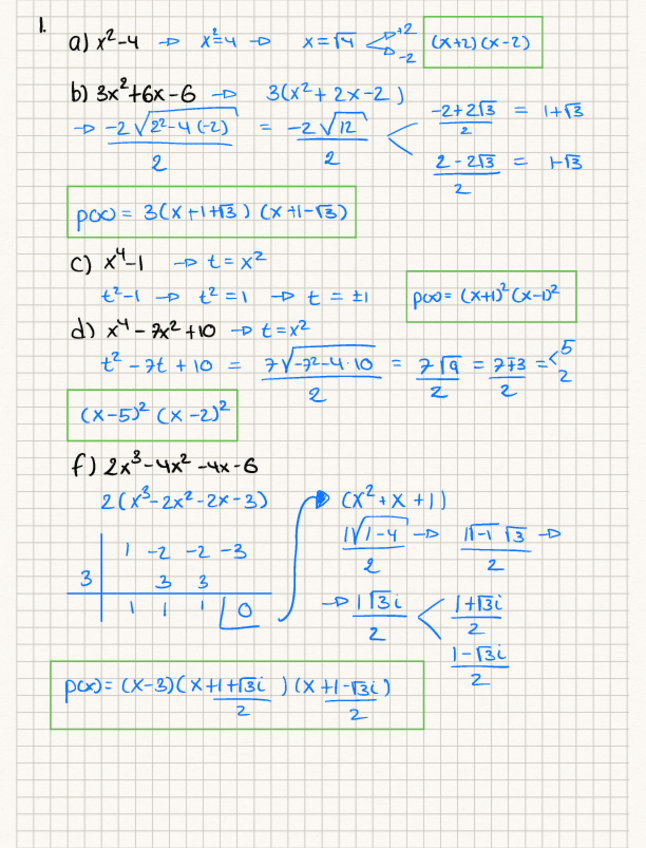 1.
a) x²-4 → x²=4 → x = √4 < +2 -2 (x+2)(x-2)
b) 3x²+6x-6 → 3(x²+2x-2)
→ -2√(2²-4(-2)) / 2 = -2√12 / 2 < (-2+2√3)/2 = 1+√3
(2-2√3)/2 = 1-√3
p(x) = 3(x+1+√3)(x+1-√3)
c) x⁴-1 → t = x²
t²-1 → t²=1 → t = ±1 p(x) = (x+1)²(x-1)²
d) x⁴-7x²+10 → t=x²
t²-7t+10 = 7√(-7²-4·10) / 2 = 7√9 / 2 = 7∓3 / 2 = < 5 2
(x-5)²(x-2)²
f) 2x³-4x²-4x-6
2(x³-2x²-2x-3) → (x²+x+1)
1√(1-4) / 2 → 1√-1 √3 / 2 →
1 -2 -2 -3
3 3 3
1 1 1 0
→ 1√3i / 2 < (1+√3i)/2
(1-√3i)/2
p(x) = (x-3)(x+(1+√3i)/2)(x+(1-√3i)/2)